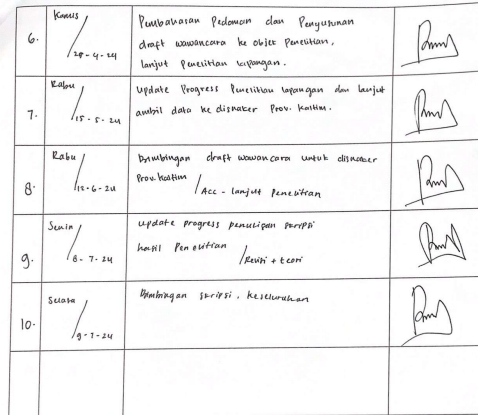 6.
Kamis /
28-4-24
Pembahasan Pedoman dan Penyusunan
draft wawancara ke objek Penelitian,
lanjut Penelitian lapangan.
7.
Rabu /
15-5-24
update Progress Penelitian lapangan dan lanjut
ambil data ke disnaker Prov. Kaltim.
8.
Rabu /
12-6-24
Bimbingan draft wawancara untuk disnaker
Prov. Kaltim / Acc - lanjut Penelitian
9.
Senin /
8-7-24
update progress penulisan skripsi
hasil Penelitian / Revisi + teori
10.
Selasa /
9-7-24
Bimbingan skripsi, keseluruhan